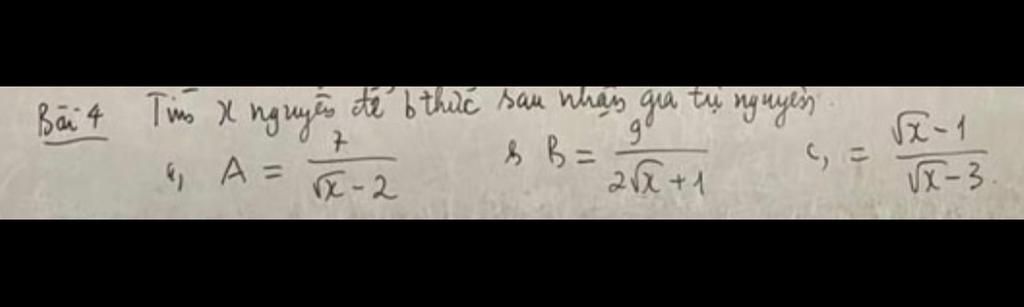 Bài 4 Tìm x nguyên để b thức sau nhận giá trị nguyên.
a, A = 7/(√x - 2) b B = 9/(2√x + 1) c, = (√x - 1)/(√x - 3).